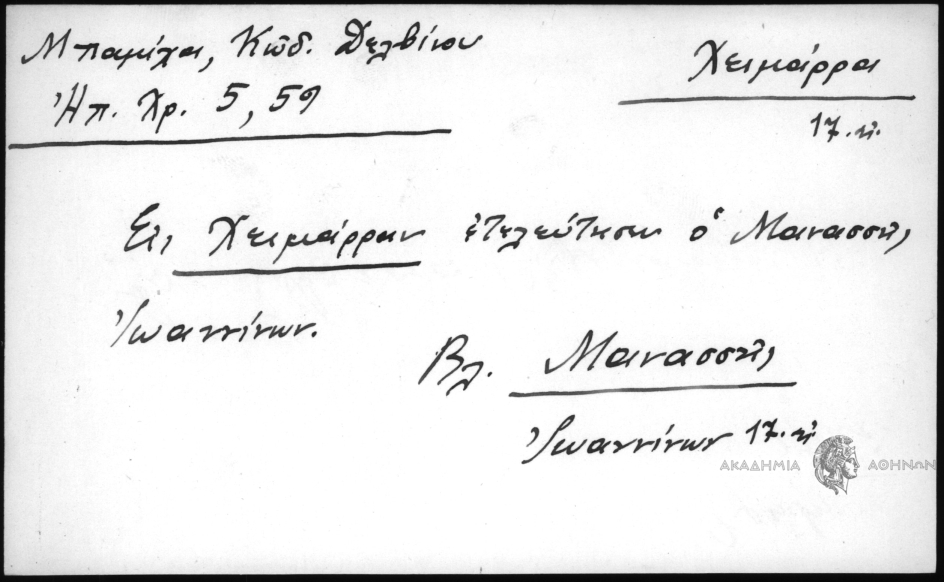 Μπαμίχα, Κῶδ. Δελβίνου
Ἠπ. Χρ. 5, 59
Χειμάρρα
17. αἰ.
Εἰς Χειμάρραν ἐτελεύτησεν ὁ Μανασσῆς
Ἰωαννίνων.
Βλ. Μανασσῆς
Ἰωαννίνων 17. αἰ.
ΑΚΑΔΗΜΙΑ ΑΘΗΝΩΝ